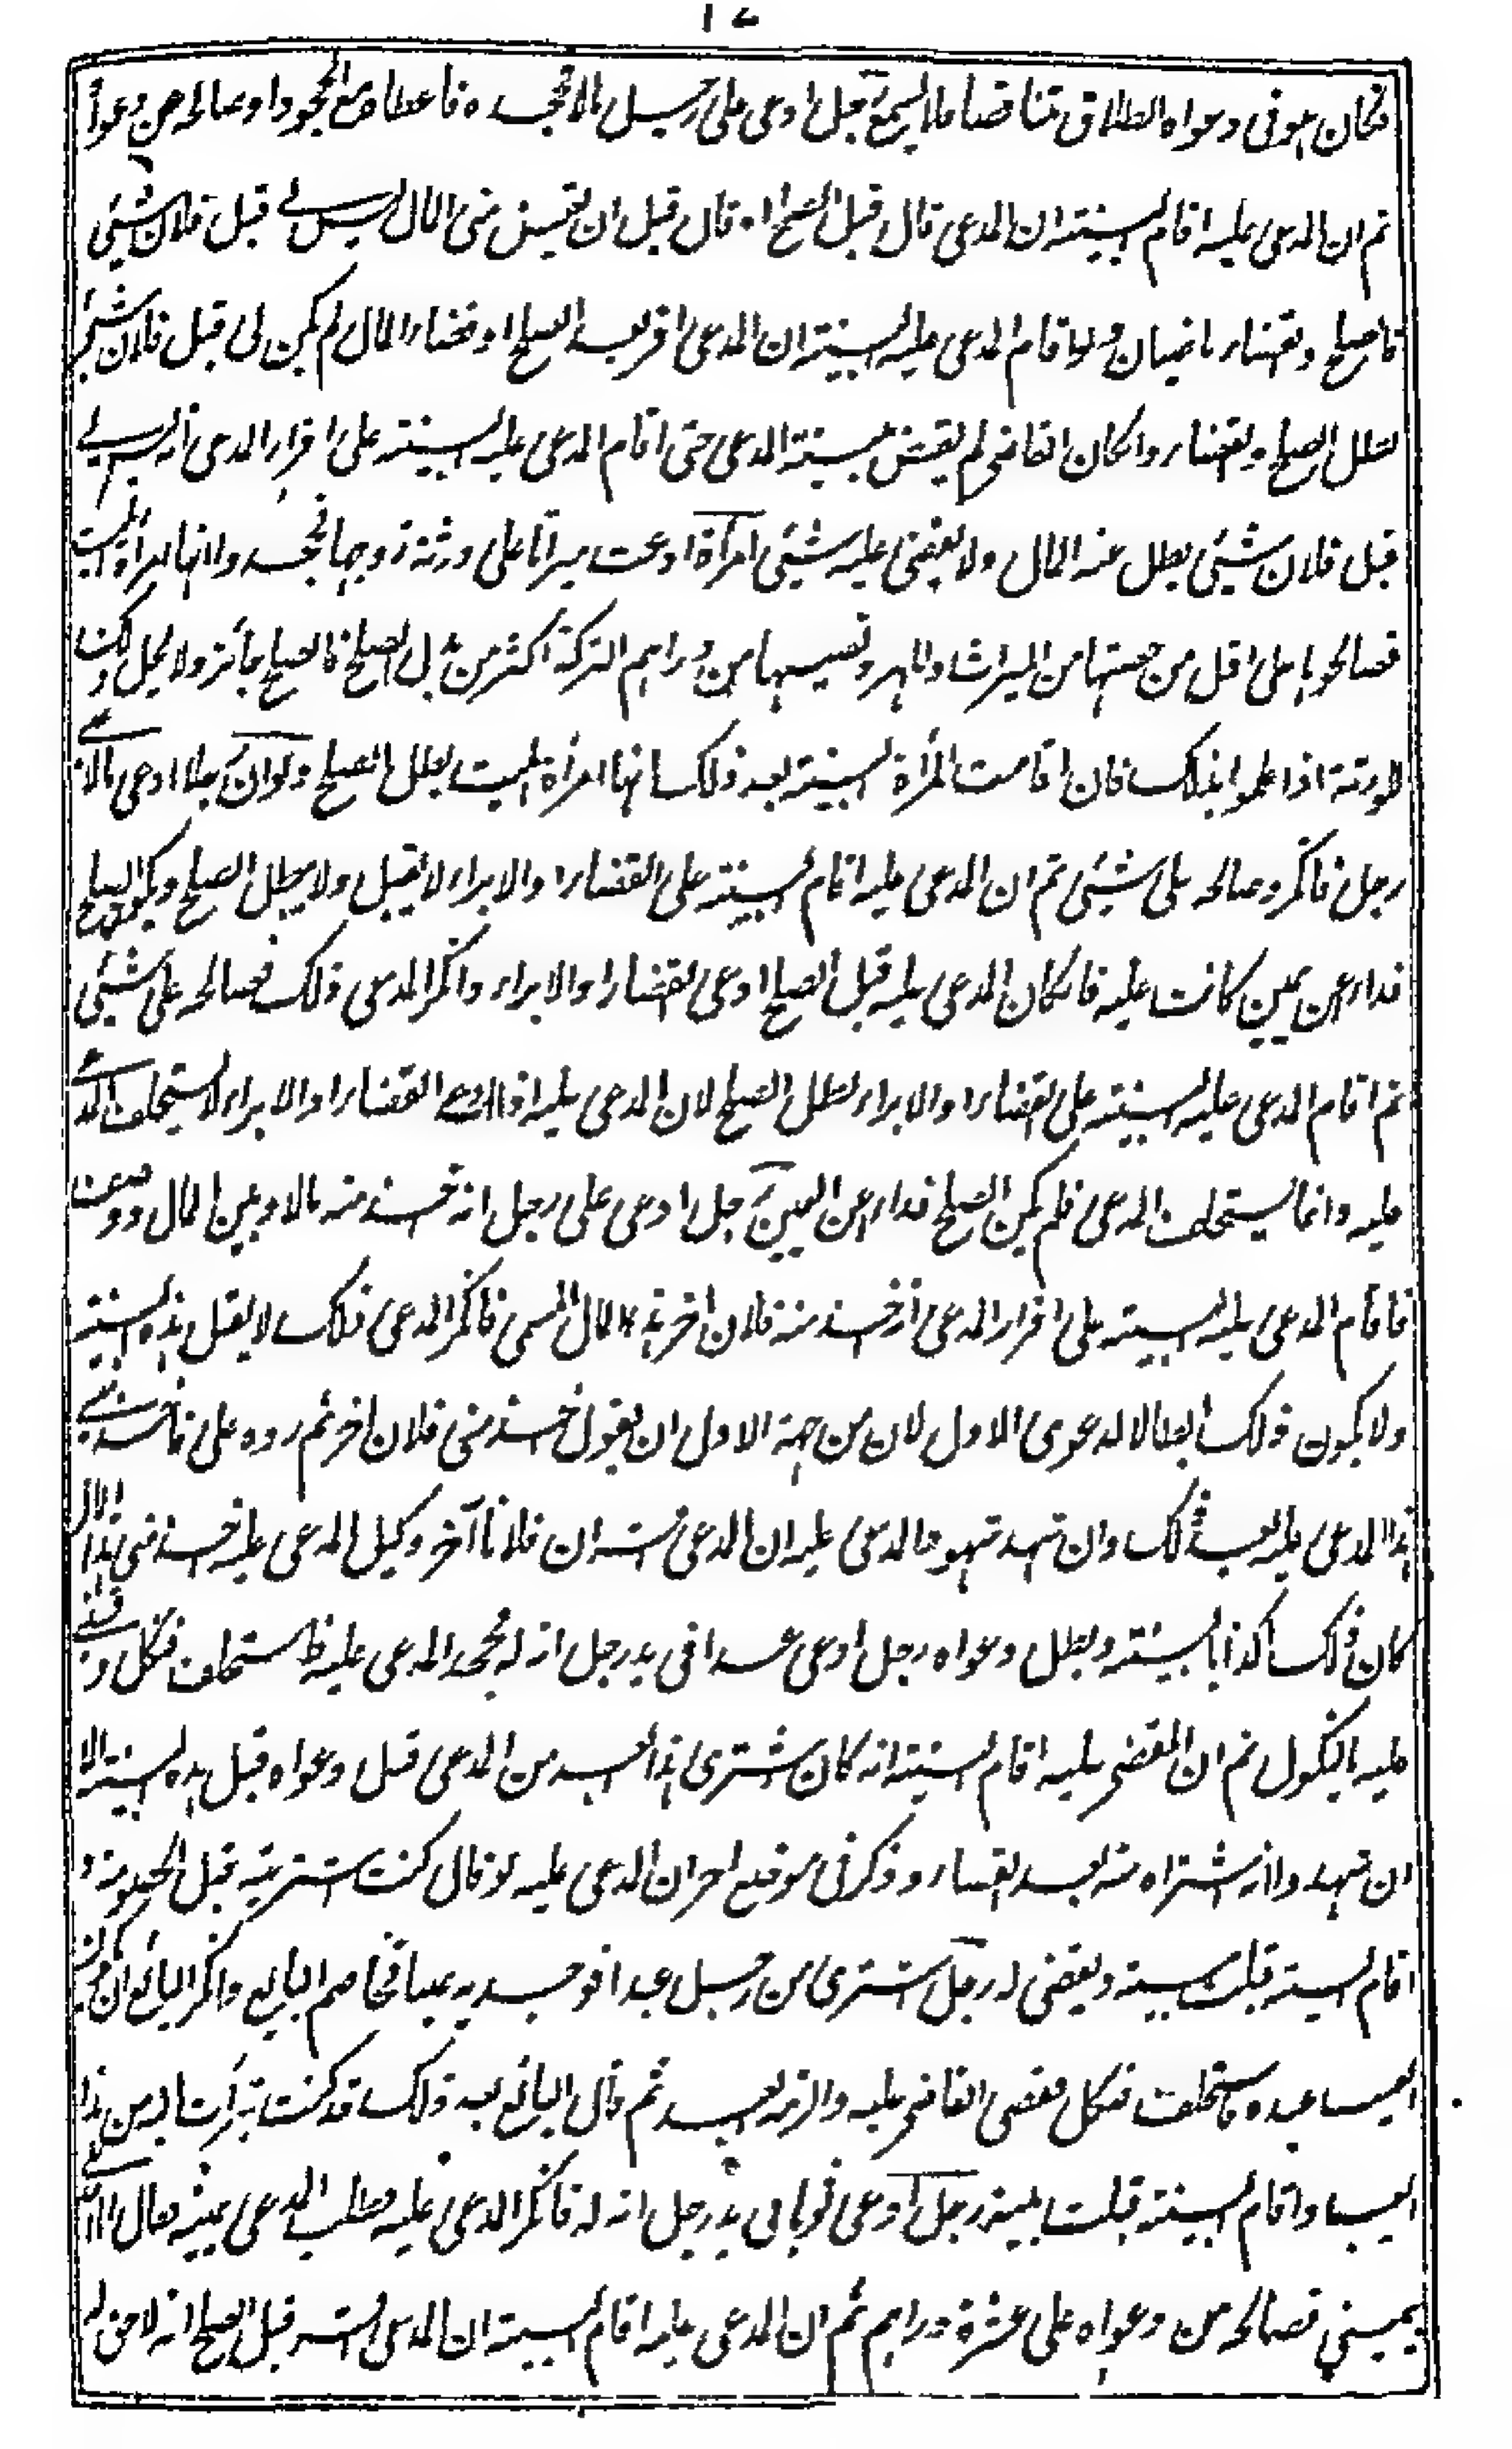 ١٧
فكان هو فى دعواه الطلاق متناقضا فلا يسمع رجل ادعى على رجل مالا فجحده فاعطاه مع الجحود او صالحه عن دعواه
ثم ان المدعى عليه اقام البينة ان المدعى قال قبل الصلح او قال قبل ان تقبض منى المال ليس لى قبل فلان شيئ
فالصلح والقضاء ماضيان ولو اقام المدعى عليه البينة ان المدعى اقر بعد الصلح او قضاء المال لم يكن لى قبل فلان شيئ
بطل الصلح والقضاء ولو كان القاضى لم يقض ببينة المدعى حتى اقام المدعى عليه البينة على اقرار المدعى انه ليس لى
قبل فلان شيئ بطل عنه المال ولا يقضى عليه شيئ امرأة ادعت ميراثا على ورثة زوجها فجحدوا انها امرأة الميت
فصالحوها على اقل من حصتها من الميراث والمهر ونصيبها من دراهم التركة اكثر من بدل الصلح فالصلح جائز ولا يحل ذلك
للورثة اذا علموا بذلك فان اقامت المرأة البينة بعد ذلك انها امرأة الميت بطل الصلح ولو ان رجلا ادعى مالا على
رجل فانكر وصالحه على شيئ ثم ان المدعى عليه اقام البينة على القضاء او الابراء لا يقبل ولا يبطل الصلح ويكون الصلح
فداء عن يمين كانت عليه فان كان المدعى عليه قبل الصلح ادعى القضاء او الابراء وانكر المدعى ذلك فصالحه على شيئ
ثم اقام المدعى عليه البينة على القضاء او الابراء بطل الصلح لان المدعى عليه اذا ادعى القضاء او الابراء لا يستحلف المدعى
عليه وانما يستحلف المدعى فلم يكن الصلح فداء عن اليمين رجل ادعى على رجل انه اخذ منه مالا وبين المال ووصفه
فاقام المدعى عليه البينة على اقرار المدعى انه اخذ منه فلان اخر هذا المال المسمى فانكر المدعى ذلك لا يقبل هذه البينة
ولا يكون ذلك ابطالا لدعوى الاول لان من حجة الاول ان يقول اخذ منى فلان اخر ثم رده على فاخذ منى
هذا المدعى عليه بعد ذلك وان شهد شهود المدعى عليه ان المدعى اقر ان فلانا آخر وكيل المدعى عليه اخذ منى هذا المال
كان ذلك اكذابا لبينته ويبطل دعواه رجل ادعى عبدا فى يد رجل انه له فجحد المدعى عليه فاستحلف فنكل وقضى
عليه بالنكول ثم ان المقضى عليه اقام البينة انه كان اشترى هذا العبد من المدعى قبل دعواه قبل هذه البينة الا
ان شهدوا انه اشتراه منه بعد القضاء وذكر فى موضع اخر ان المدعى عليه لو قال كنت اشتريته قبل الخصومة و
اقام البينة قبلت بينته ويقضى له رجل اشترى من رجل عبدا فوجد به عيبا فخاصم البائع وانكر البائع ان يكون
العيب عنده فاستحلف فنكل فقضى القاضى عليه والزمه العبد ثم قال البائع بعد ذلك قد كنت تبرأت اليه من هذا
العيب واقام البينة قبلت بينته رجل ادعى ثوبا فى يد رجل انه له فانكر المدعى عليه فطلب المدعى يمينه فقال
يمينى فصالحه من دعواه على عشرة دراهم ثم ان المدعى عليه اقام البينة ان المدعى اقر قبل الصلح انه لا حق له